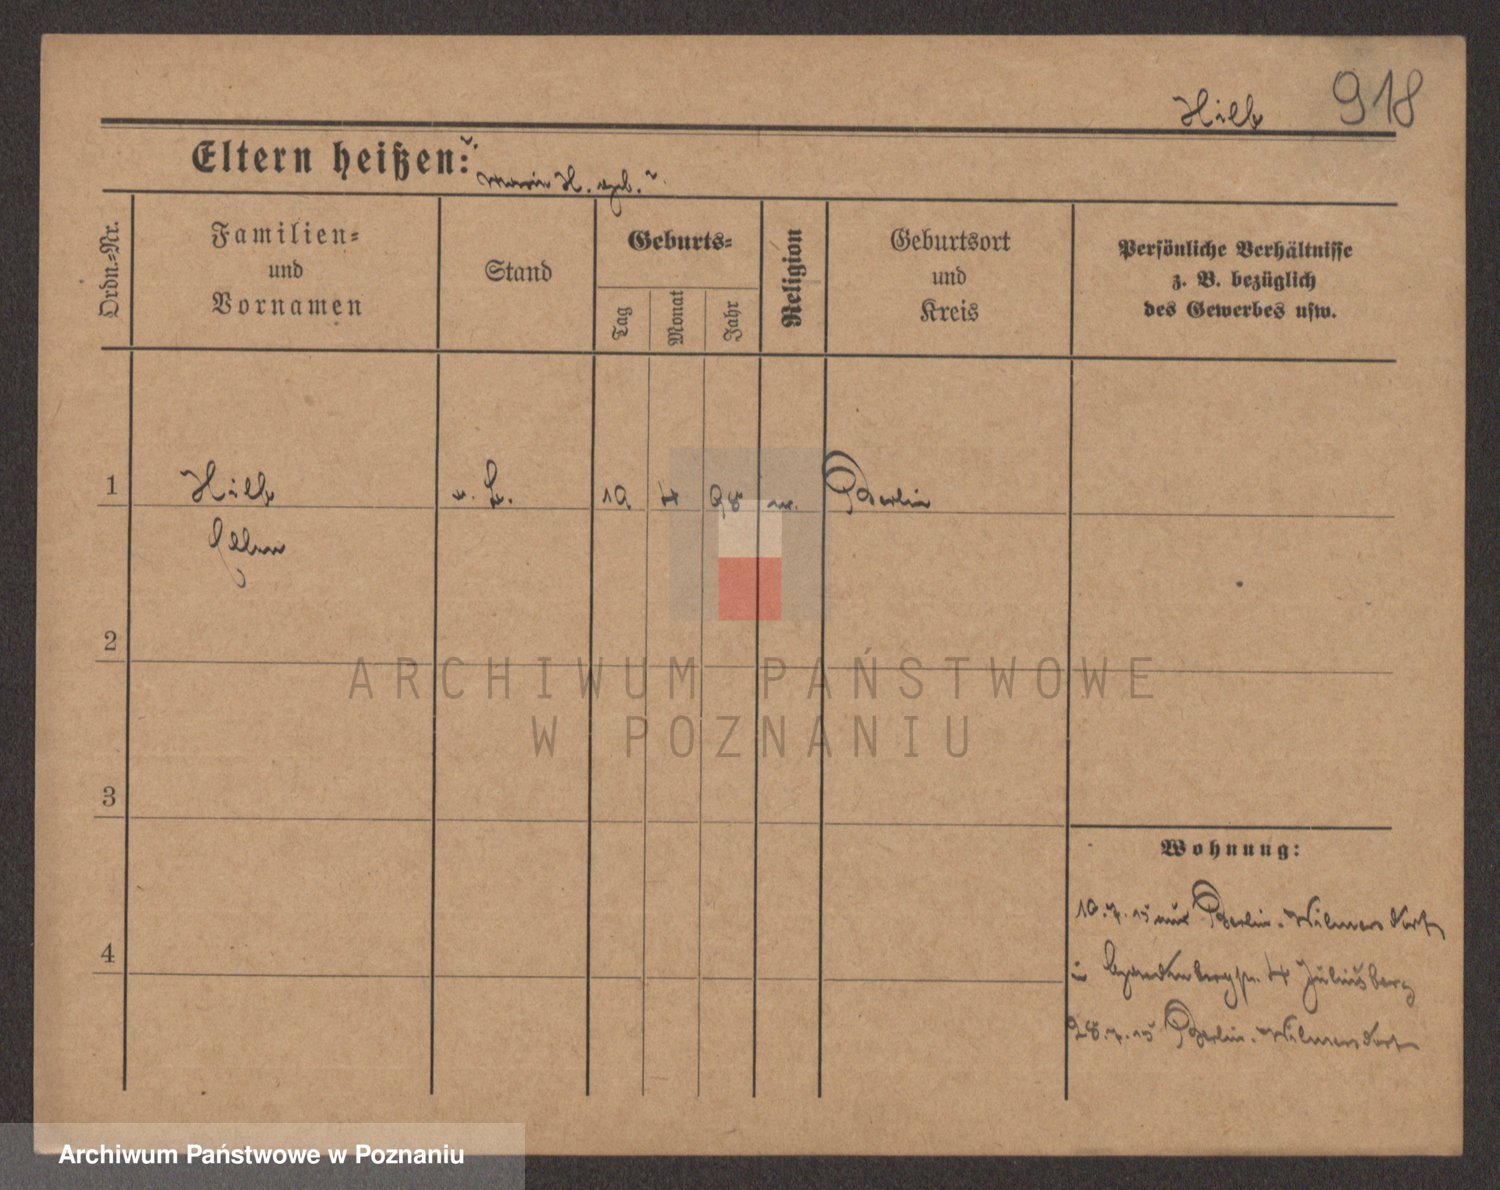 Hilb 918
Eltern heißen:
Marie H. geb.
Ordn.-Nr.
Familien-
und
Vornamen
Stand
Geburts-
Tag
Monat
Jahr
Religion
Geburtsort
und
Kreis
Persönliche Verhältnisse
z. B. bezüglich
des Gewerbes usw.
1 Hilb 19 4 98 Berlin
Ellen
2
ARCHIWUM PAŃSTWOWE
W POZNANIU
3
Wohnung:
10.7.15 aus Berlin-Wilmersdorf
4
in 4 Juliusberg
28.7.15 Berlin-Wilmersdorf
Archiwum Państwowe w Poznaniu